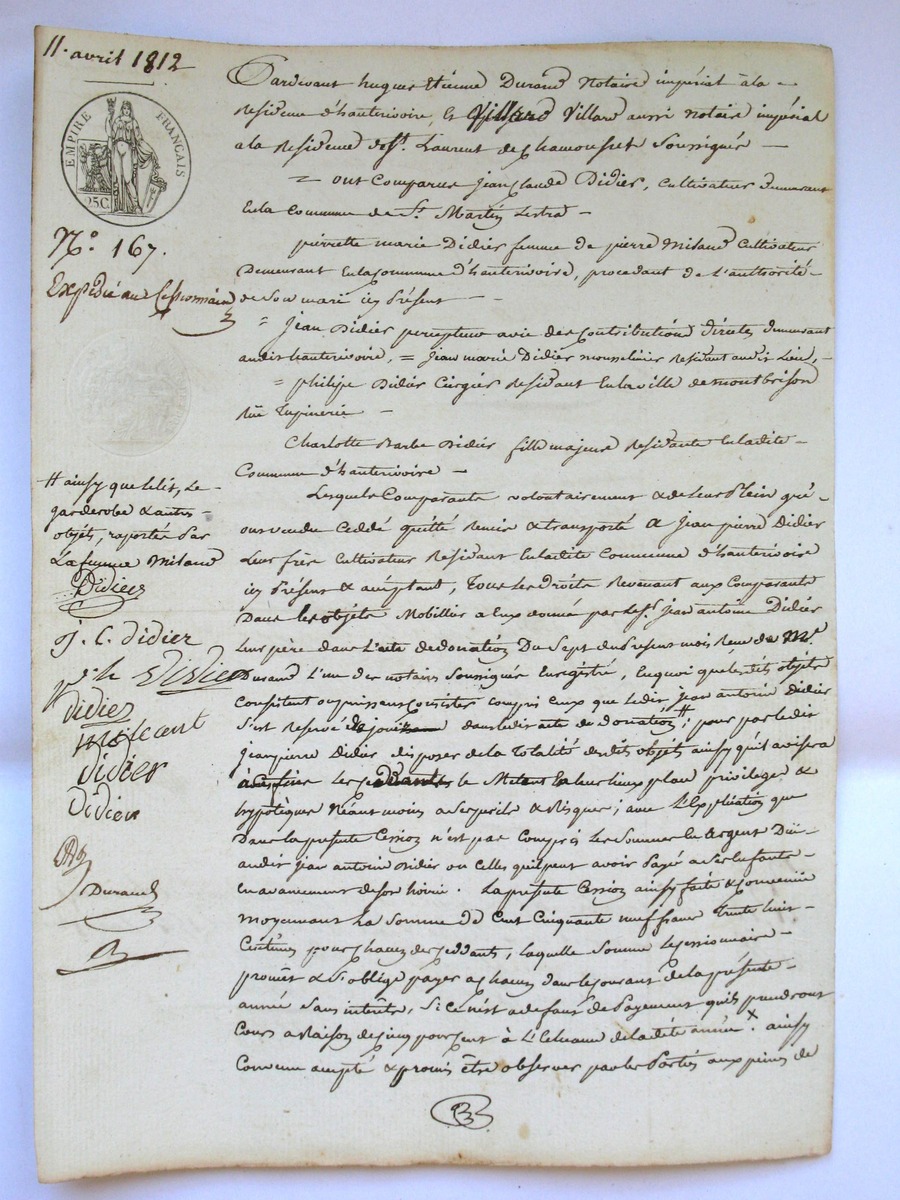 11. avril 1812
EMPIRE FRANÇAIS
25C.
N.o 167.
Expédié au Cessionnaire
# ainsy que le lit, le
garderobe & autres
objets, raportés par
la femme Milaud
Didier
j. C. didier
ph Didier
didier
Didier
Didier
Durand
Pardevant hugues Etienne Durand Notaire impérial à la
Residence d'hauterivoire, & Villard aussi notaire impérial
a la Residence de St. Laurent de Chamousset Soussignés
= ont Comparus Jean Claude Didier, Cultivateur demeurant
En la Commune de St. Martin Lestra
pierrette marie Didier femme de pierre Milaud Cultivateur
Demeurant En la Commune d'hauterivoire, procedant de l'authorité
de Son mari icy Présent
= Jean Didier percepteur des Contributions directes demeurant
audit hauterivoire, = Jean marie Didier mousselinier Residant audit Lieu,
= philippe Didier Cirgier Residant En la ville de montbrison
Rüe Tupinerie
Charlotte Barbe Didier fille majeure Residante En la dite
Commune d'hauterivoire
Lesquels Comparants volontairement & de Leur Plein gré
ont vendu Ceddé quitté Remis & transporté A Jean pierre Didier
Leur frère Cultivateur Residant En la dite Commune d'hauterivoire
icy Présent & acceptant, Tous Les Droits Revenant aux Comparants
Dans les objets Mobillier a Eux donné par le Sr. Jean antoine Didier
Leur père dans L'acte de donation Du Sept du Présent mois Reçu de Me
Durand L'un des notaires Soussignés Enregistré, En quoi que les dits objets
Consistent ou puissent Consister Compris Ceux que Ledit Jean antoine Didier
S'est Reservé dans ledit acte de donation #; pour par ledit
Jean pierre Didier disposer de la Totalité des dits objets ainsy qu'il avisera
Les Ceddants le Mettent En leur Lieux place privileges &
hypotèques Néanmoins a Ses perils & Risques; avec L'Explication que
Dans la presente Cession n'est pas Compris Les Sommes En Argent Düe
audit Jean antoine Didier ou Celles qu'il peut avoir Payé a Ses Enfants
En avancement de Son hoirie. La presente Cession ainsy faite & Convenüe
moyennant La Somme de Cent Cinquante neuf francs trente huit
Centimes pour Chacun des Ceddants, Laquelle Somme Le Cessionnaire
promêt & S'oblige payer a Chacun dans le Courant de la présente
année Sans intérêts, Si Ce n'est a défaut de Payement qu'ils prendront
Cours a Raison de Cinq pour Cent à L'Echeance de la dite année x. ainsy
Convenu accepté & promis être observer par les Parties aux peines de